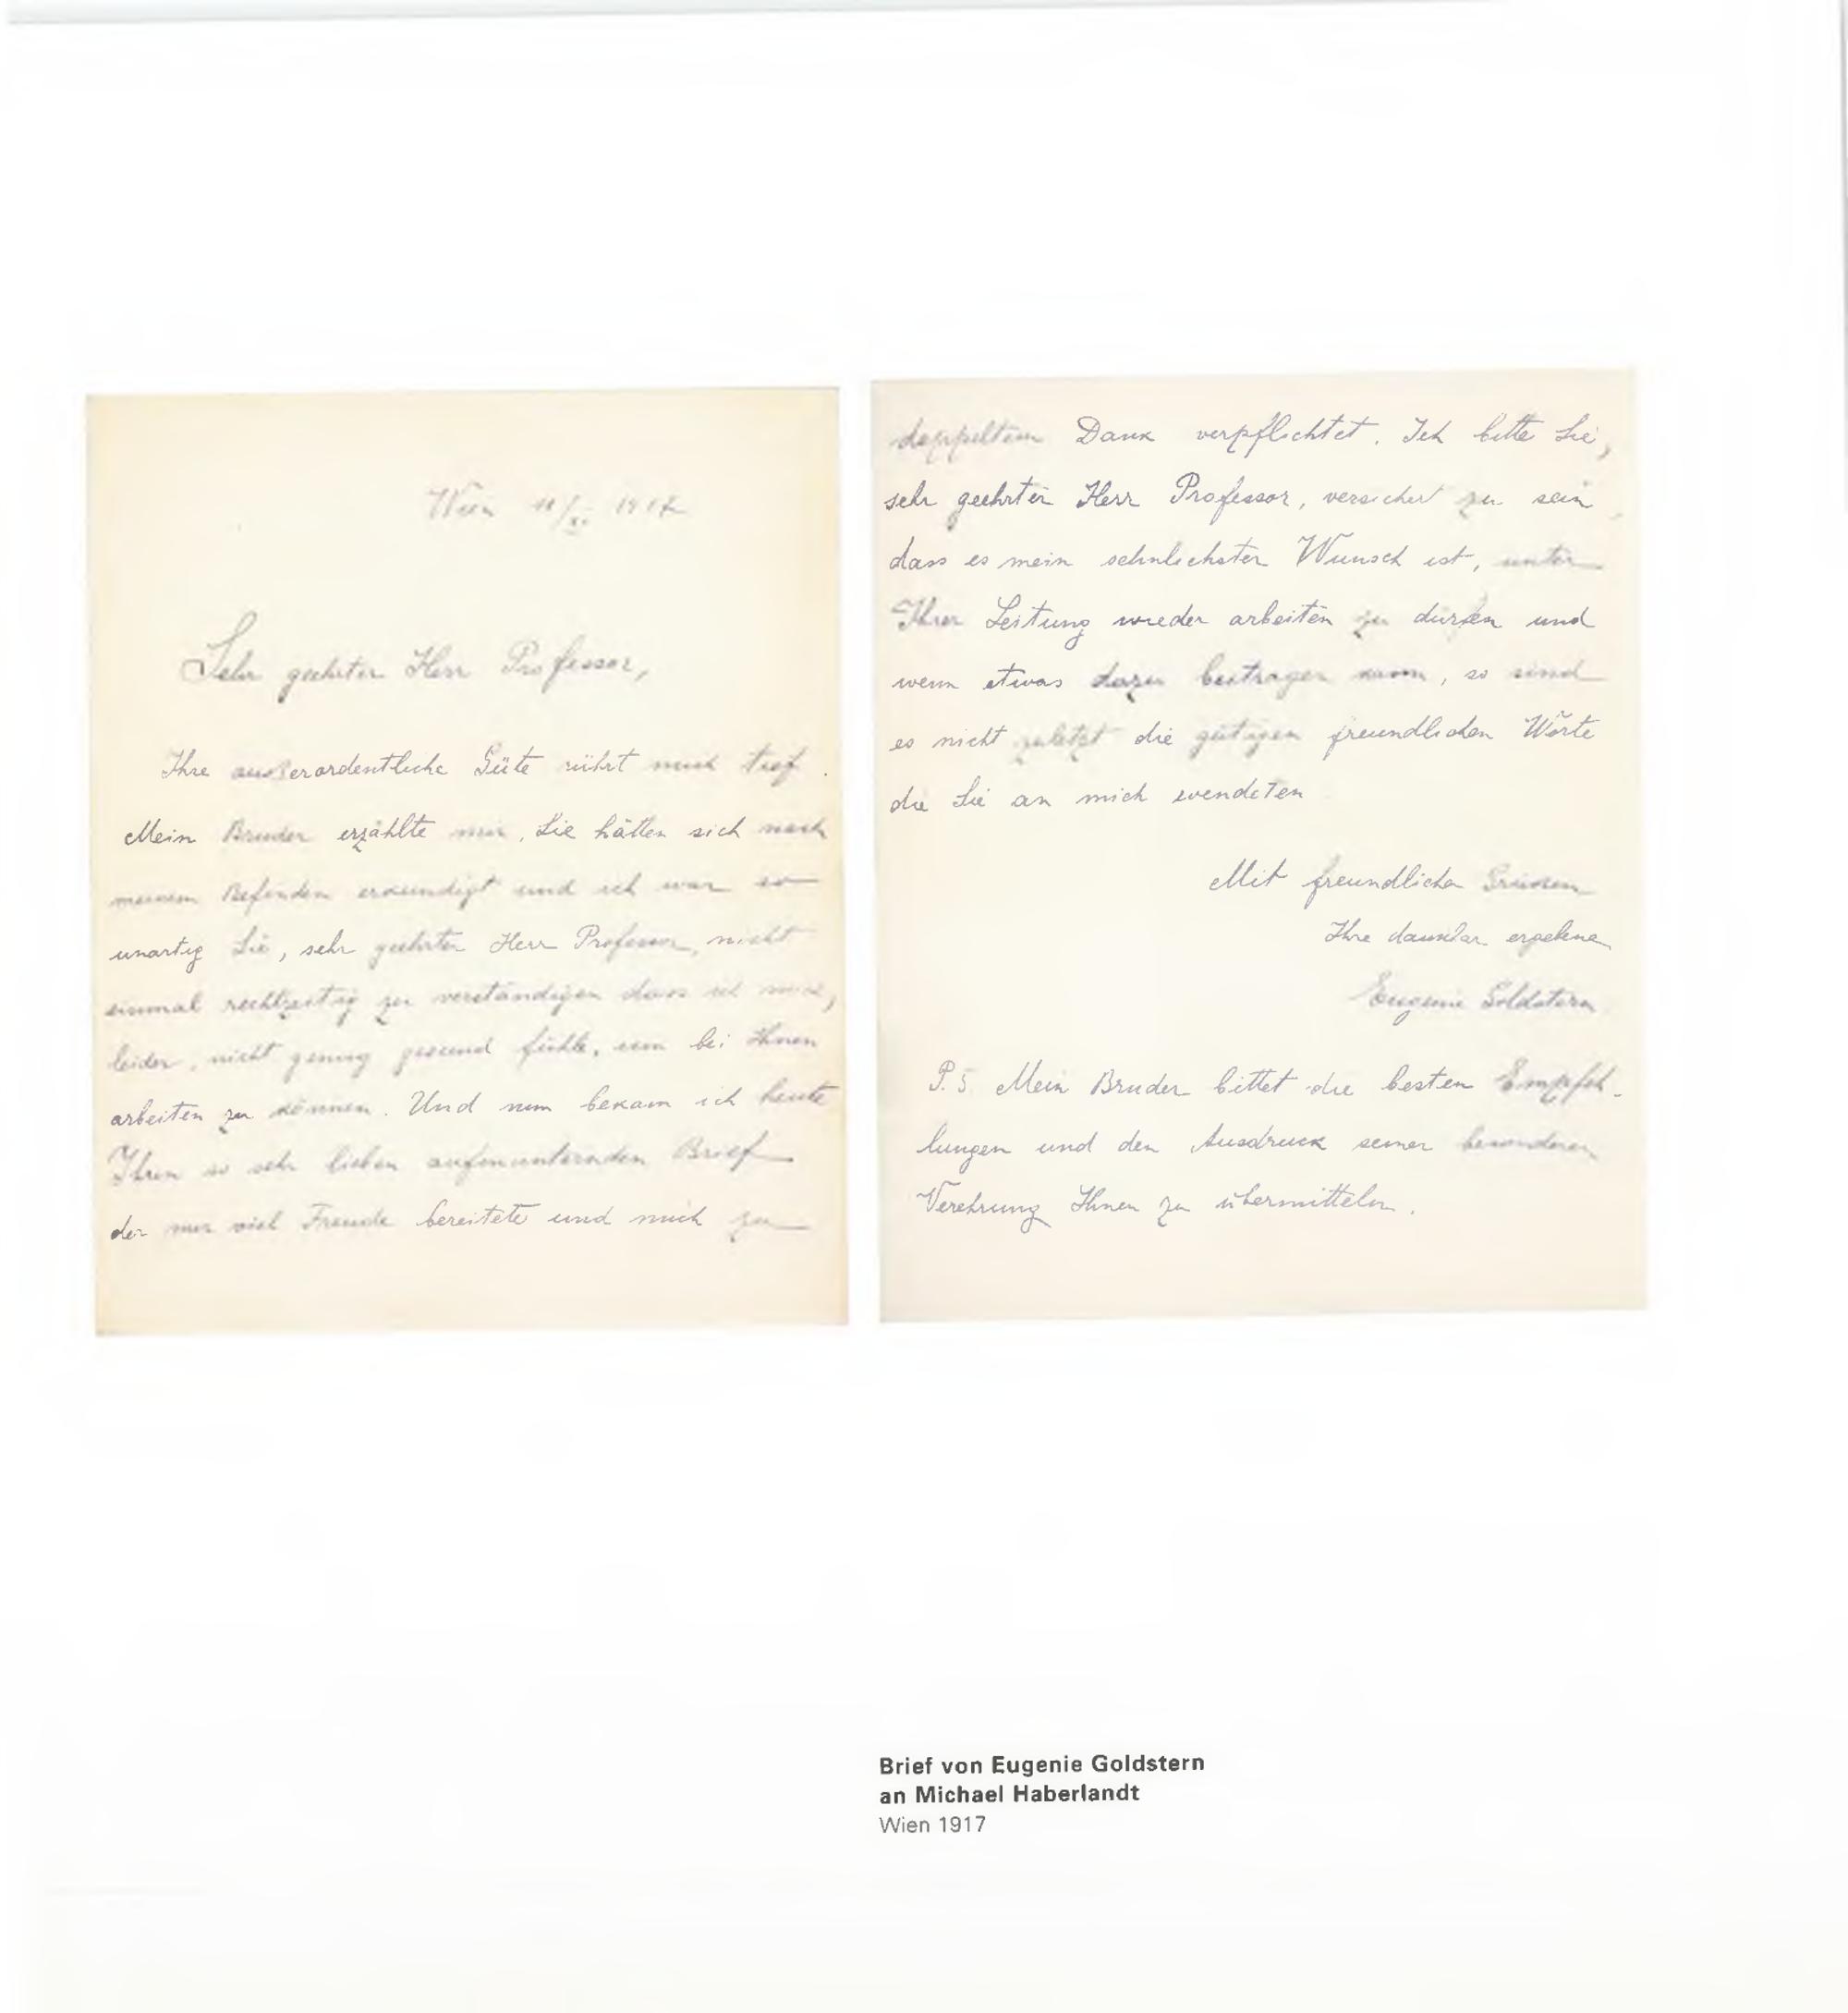 Wien 11/XI. 1917
Sehr geehrter Herr Professor,
Ihre außerordentliche Güte rührt mich tief.
Mein Bruder erzählte mir, Sie hätten sich nach
meinem Befinden erkundigt und ich war so
unartig Sie, sehr geehrter Herr Professor, nicht
einmal rechtzeitig zu verständigen dass ich mich,
leider, nicht genug gesund fühle, um bei Ihnen
arbeiten zu können. Und nun bekam ich heute
Ihren so sehr lieben aufmunternden Brief
der mir viel Freude bereitete und mich zu
doppeltem Dank verpflichtet. Ich bitte Sie,
sehr geehrter Herr Professor, versichert zu sein,
dass es mein sehnlichster Wunsch ist, unter
Ihrer Leitung wieder arbeiten zu dürfen und
wenn etwas dazu beitragen kann, so sind
es nicht zuletzt die gütigen freundlichen Worte
die Sie an mich wendeten
Mit freundlichen Grüssen
Ihre dankbar ergebene
Eugenie Goldstern
P.S. Mein Bruder bittet die besten Empfeh-
lungen und den Ausdruck seiner besonderen
Verehrung Ihnen zu übermitteln.
Brief von Eugenie Goldstern
an Michael Haberlandt
Wien 1917